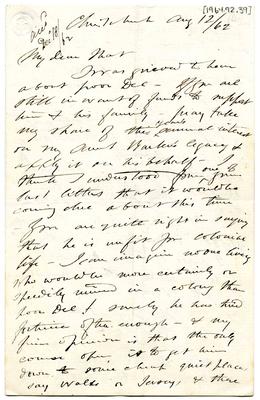 [1964.92.39]
Christchurch Aug 12/62
My dear That
I was grieved to hear
about poor Del - If you are
still in want of funds to support
him & his family - pray take
my share of this year's annual interest
on my Aunt Barker's legacy &
apply it on his behalf - I
think I understood from your
last letters that it would be
coming due about this time
You are quite right in saying
that he is unfit for colonial
life - I can imagine no one living
who would be more certainly or
speedily ruined in a colony than
poor Del! surely he has tried
fortune often enough - & my
firm opinion is that the only
course open is to get him
down to some cheap quiet place
say Wales or Jersey, & there